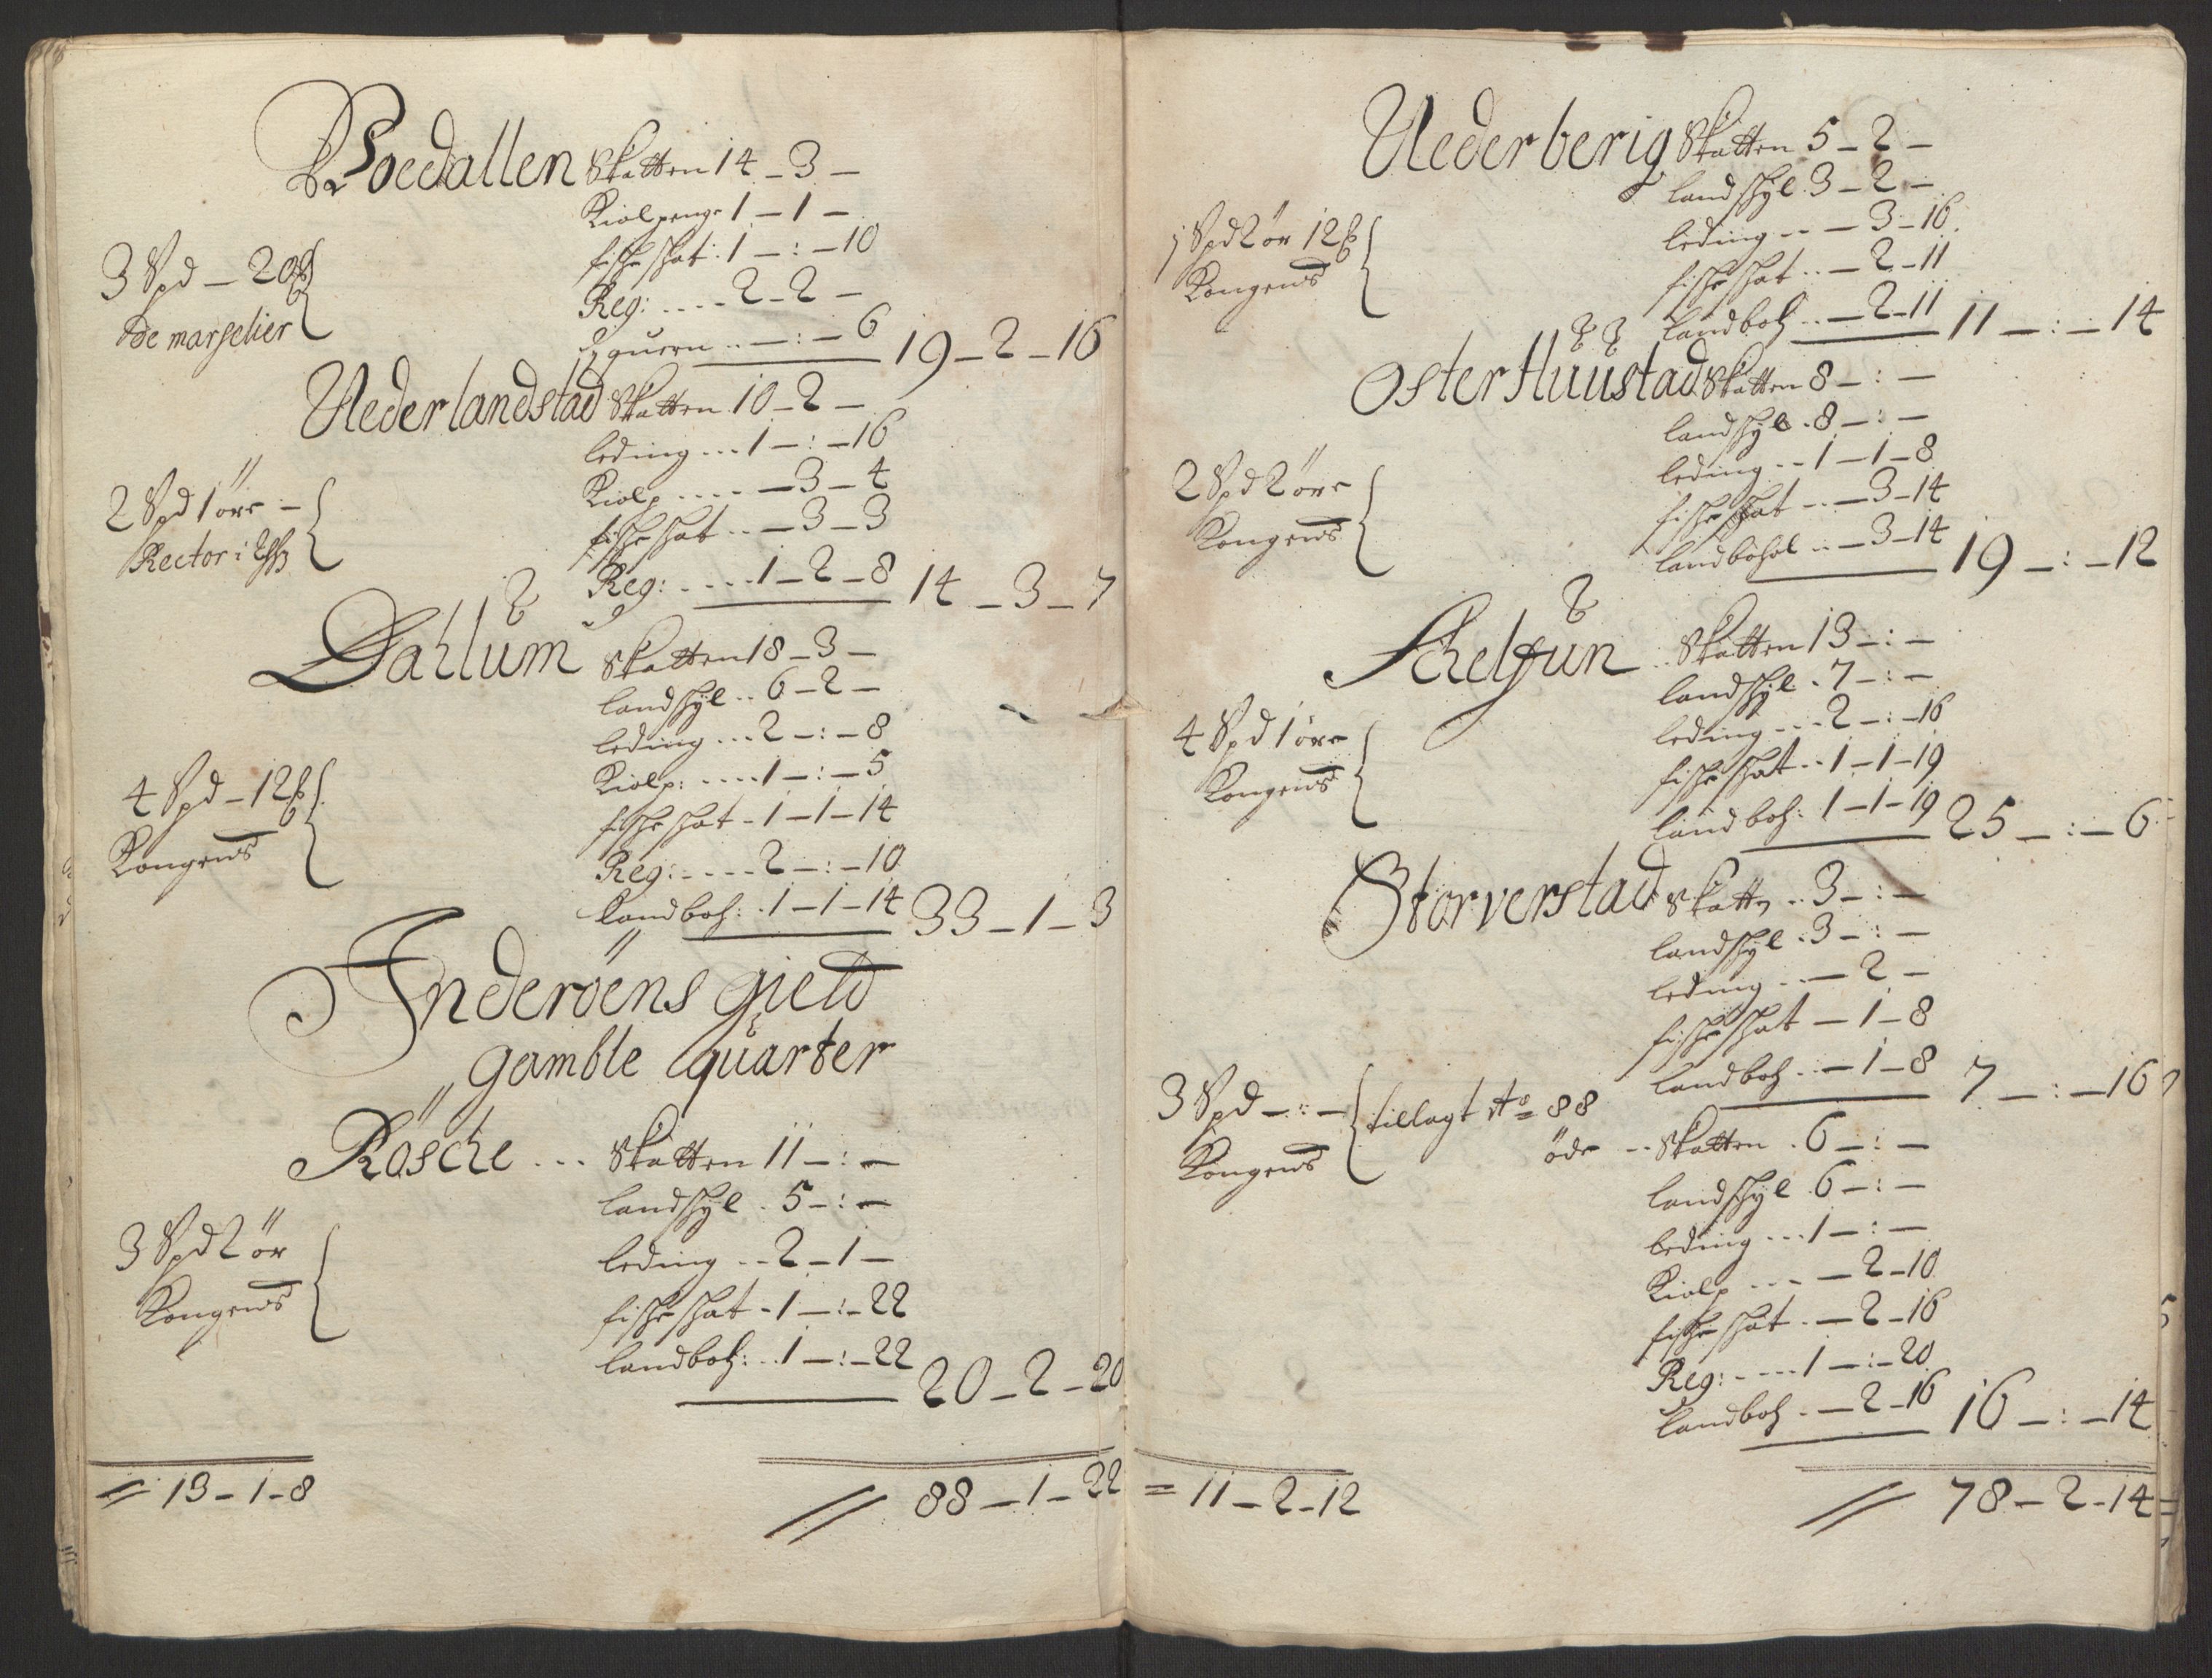 Boedallen Skatten 14 – 3 –
Kiolpenge 1 – 1 –
fische skat: 1 – : – 10
3 Spd – 20 ß
Reg: .... 2 – 2 –
De marselier
quern .. – : – 6 19 – 2 – 16
Nederlandstad Skatten 10 – 2 –
leding ... 1 – : – 16
Kiolp ..... – 3 – 4
2 Spd 1 öre –
fische skat .. – 3 – 3
Rector i
Reg: .... 1 – 2 – 8 14 – 3 – 7
Dahlum Skatten 18 – 3 –
landskyl .. 6 – 2 –
leding ... 2 – : – 8
Kiolp: .... 1 – : – 5
4 Spd – 12 ß
fische skat - 1 – 1 – 14
Kongens
Reg: .... 2 – : – 10
Landboh: . 1 – 1 – 14 33 – 1 – 3
Inderöens gield
gamble quarter
Rösche ... Skatten 11 – : –
landskyl . 5 – : –
3 Spd 2 ör
leding .. 2 – 1 –
Kongens
fische skat - 1 – : – 22
landboh: .. 1 – : – 22 20 – 2 – 20
= 13 – 1 – 8 // 88 – 1 – 22
Nederberig Skatten 5 – 2 –
landskyl 3 – 2 –
1 Spd 2 ör 12 ß
leding .. – 3 – 16
Kongens
fische skat .. – 2 – 11
landboh .. – 2 – 11 11 – : – 14
Oster Huustad Skatten 8 – : –
landskyl . 8 – : –
2 Spd 2 öre
leding .. 1 – 1 – 8
Kongens
fische skat .. – 3 – 14
landbohol .. – 3 – 14 19 – : – 12
Schelfun .. Skatten 13 – : –
landskyl . 7 – : –
4 Spd 1 öre
leding ... 2 – : – 16
Kongens
fische skat .. 1 – 1 – 19
landboh: 1 – 1 – 19 25 – : – 6
Storverstad Skattn .. 3 – : –
landskyl . 3 – : –
leding .. – 2 –
fische skat – 1 – 8
3 Spd – : –
landboh .. – 1 – 8 7 – : – 16
tillagt Ao 88
Kongens
öde .. Skatten . 6 – : –
landskyl . 6 – : –
leding ... 1 – : –
Kiolp ... – 2 – 10
fische skat . – 2 – 16
Reg: .... 1 – : – 20
landboh . – 2 – 16 16 – : – 14
= 11 – 2 – 12 // 78 – 2 – 14